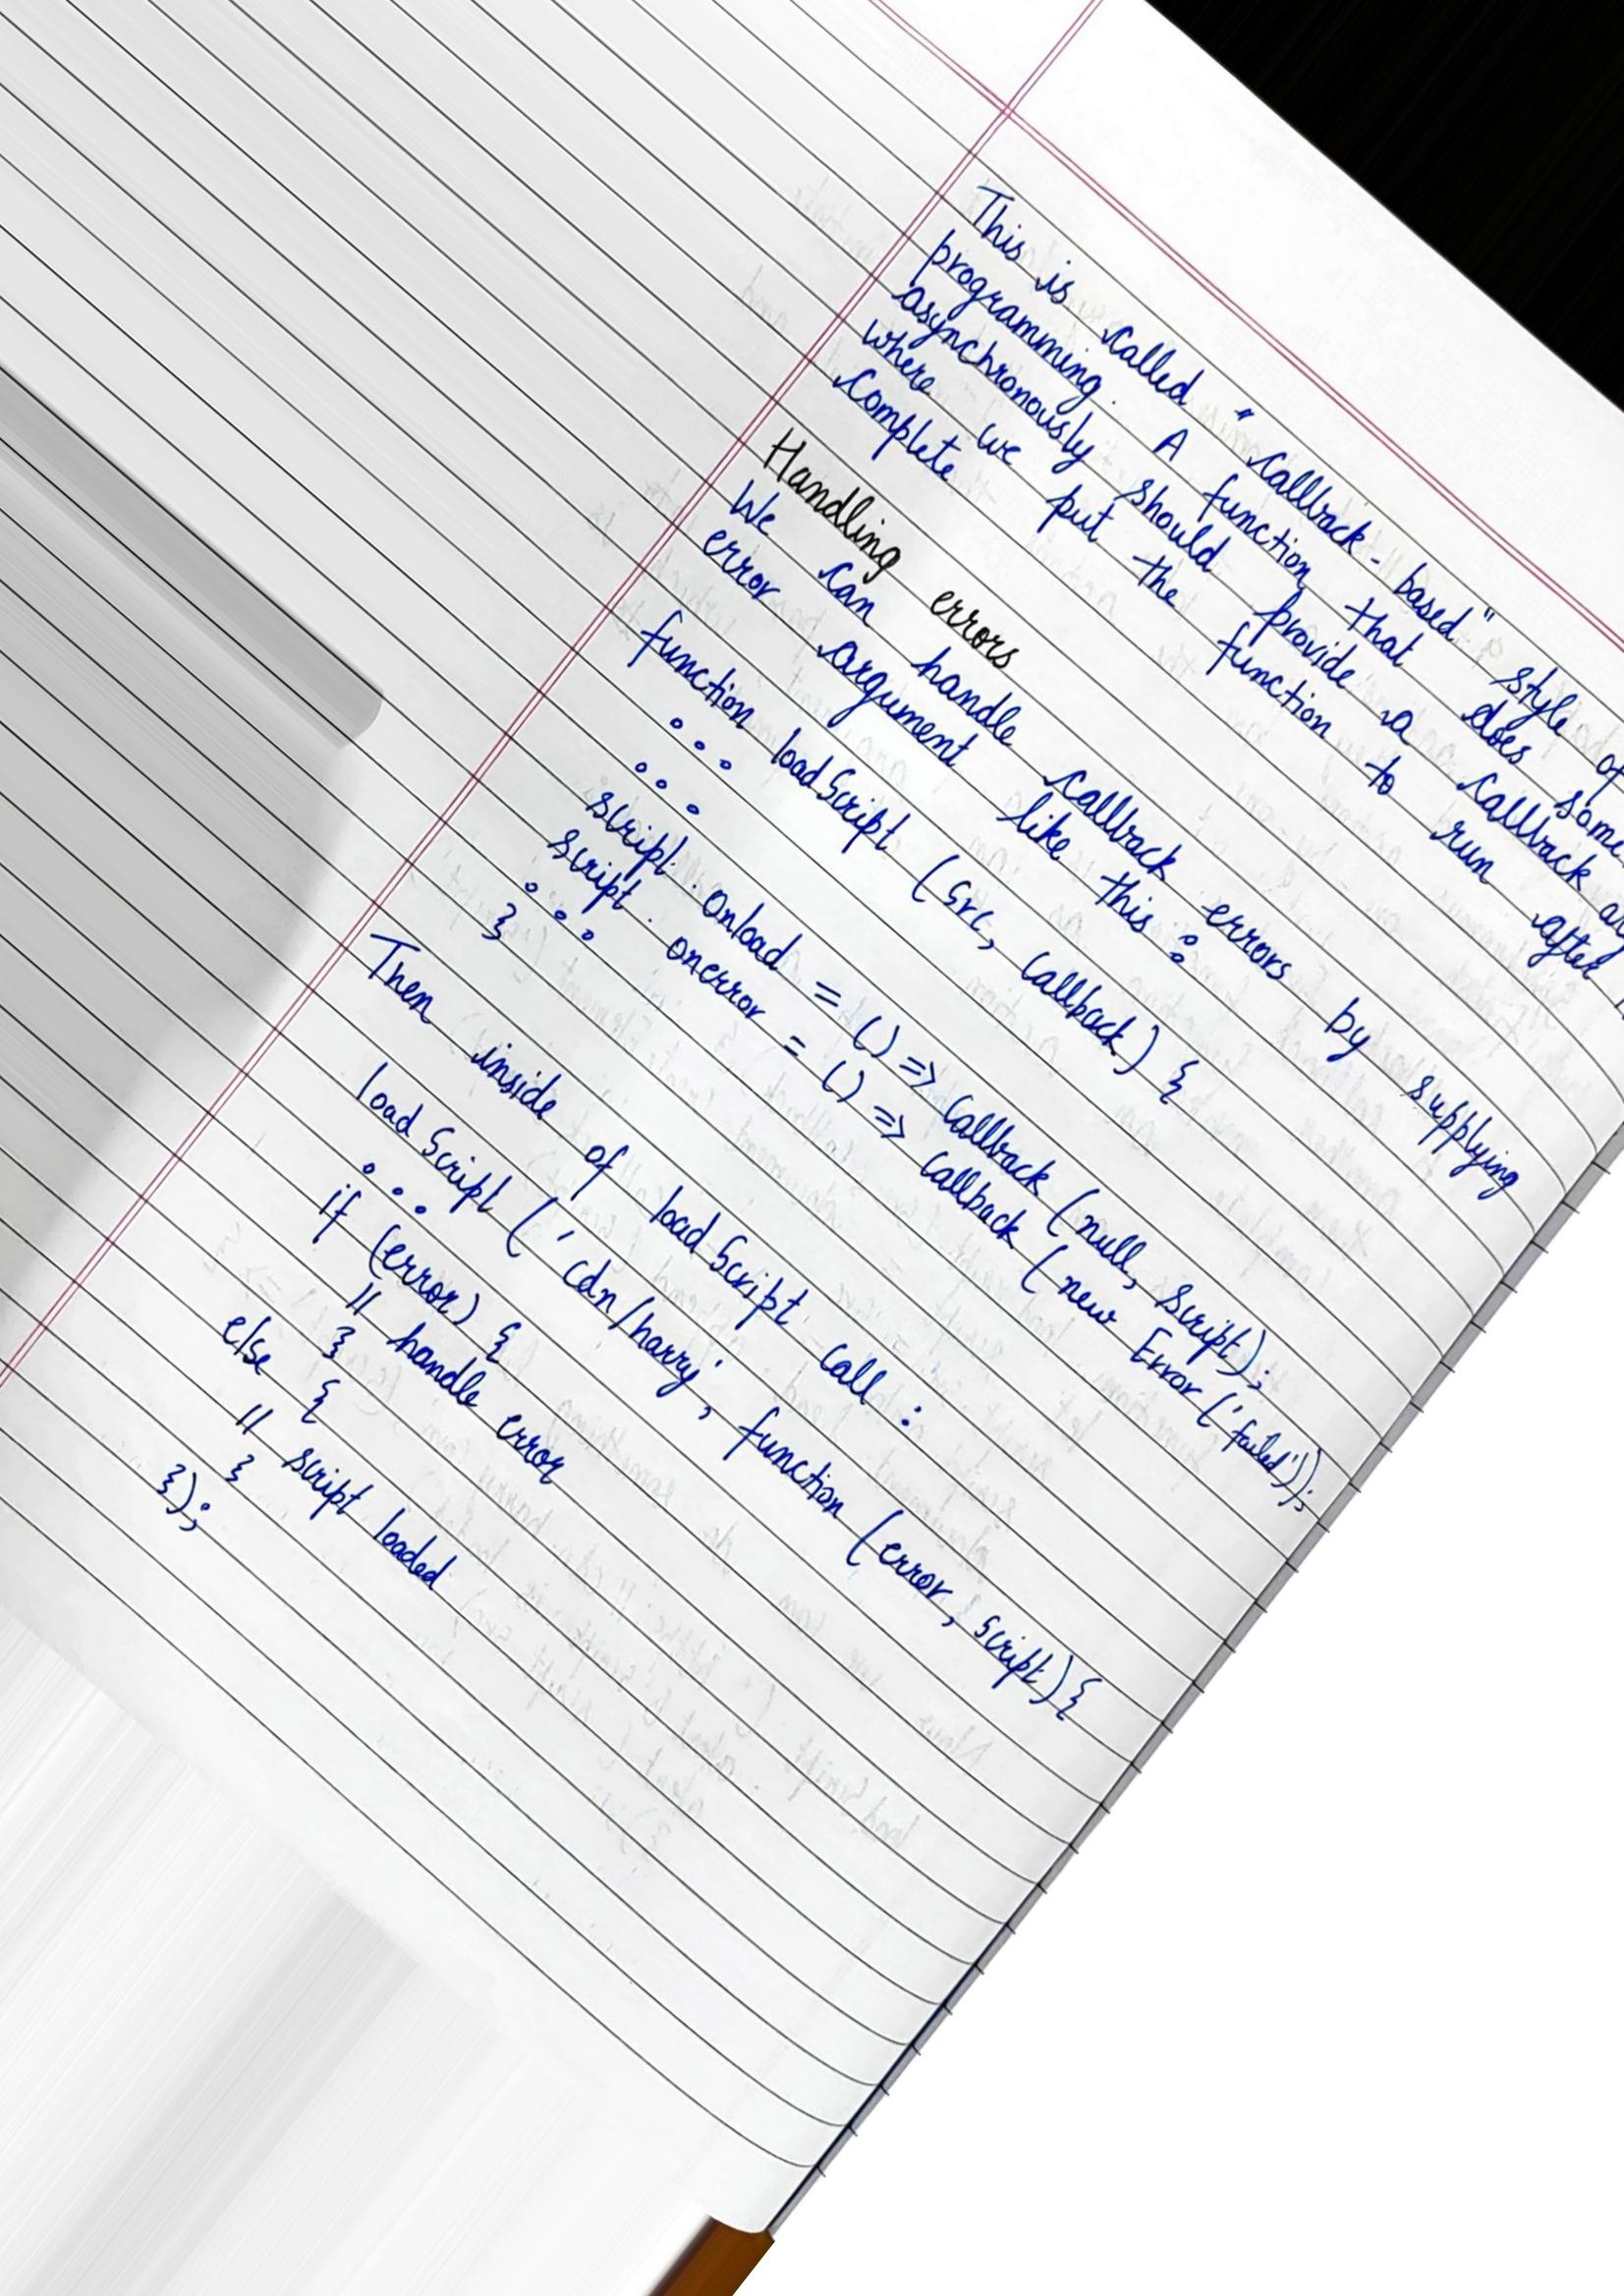 This is called "callback-based" style of
programming. A function that does some
asynchronously should provide a callback
where we put the function to run after
complete
Handling errors
We can handle callback errors by supplying
error argument like this :
function loadScript (src, callback) {
. . .
. . .
script. onload = () => callback (null, script);
script. onerror = () => callback (new Error ('failed'));
. . .
}
Then inside of loadScript call :
loadScript ('cdn/harry', function (error, script) {
. . .
if (error) {
// handle error
}
else {
// script loaded
}
});